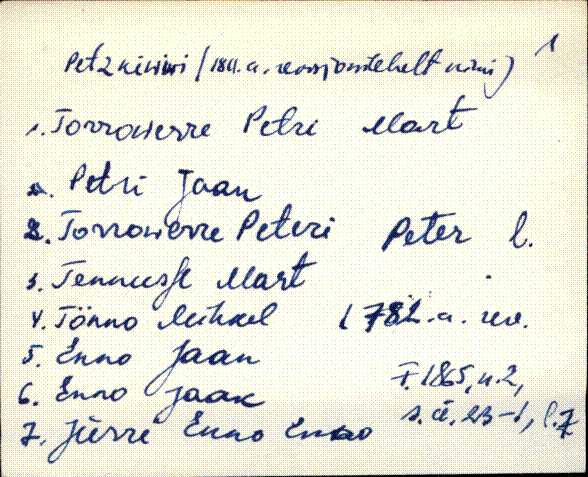 1
Petzkiwwi (1811.a. revisjonilehelt nimi)
1. Torrowerre Petri Mart
a. Petri Jaan
2. Torrowerre Peteri Peter l.
3. Tennusse Mart
4. Tönno Mihkel 1782.a. rev.
5. Enno Jaan
6. Enno Jaak F.1865, n.2,
7. Jürre Enno Enno s.ü. 23-1, l.7